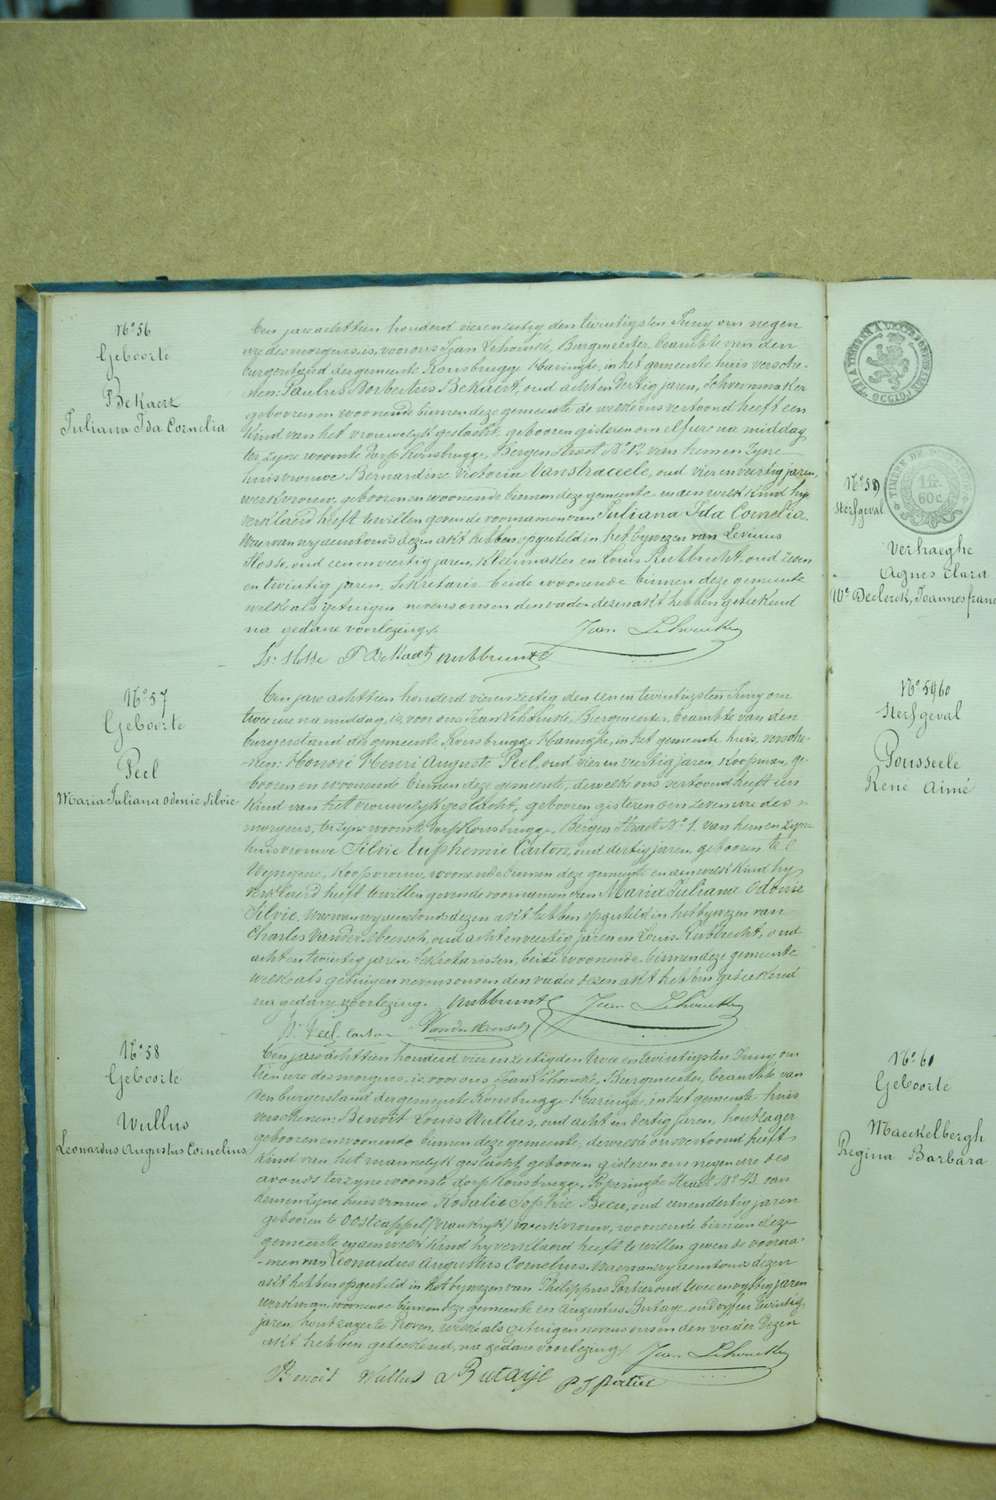 N° 56
Geboorte
Bekaert
Juliana Ida Cornelia
Een jaar achttien honderd vier en zestig den twintigsten Juny om negen
ure des morgens, is voor ons Jean Lehoucke, Burgmeester, beambte van den
burgerstand der gemeente Rousbrugge Haringhe, in het gemeente huis versche-
nen: Paulus Norbertus Bekaert, oud acht en dertig jaren, Schoenmaker
geboren en woonende binnen deze gemeente de welke ons vertoond heeft een
kind van het vrouwelyk geslacht, geboren gisteren om elf ure na middag
ter zyne woonste dorp Rousbrugge, Bergen Straat N° 12 van hem en zyne
huisvrouwe Bernardine Victoria Vanstraceele, oud vier en veertig jaren,
werkvrouw, geboren en woonende binnen deze gemeente en aen welk kind hy
verklaerd heeft te willen geven de voornamen van Juliana Ida Cornelia.
Waer van wy deenvolends dezen akt hebben opgesteld in het bywezen van Levinus
Hosse, oud een en veertig jaren, kleermaker en Louis Rubbrecht, oud zeven
en twintig jaren, Sekretaris beide woonende binnen deze gemeente
welke als getuigen nevens ons en den vader dezen akt hebben geteekend
na gedane voorlezing.
Jean Lehoucke
Ls Hosse P Bekaert Rubbrecht
N° 57
Geboorte
Peel
Maria Juliana Odonie Silvie
Een jaar achttien honderd vier en zestig den een en twintigsten Juny om
twee ure na middag, is voor ons Jean Lehoucke, Burgmeester, beambte van den
burgerstand der gemeente Rousbrugge Haringhe, in het gemeente huis, versche-
nen: Honoré Henri Auguste Peel, oud vier en veertig jaren, koopman, ge-
boren en woonende binnen deze gemeente, dewelke ons vertoond heeft een
kind van het vrouwelyk geslacht, geboren gisteren om zeven ure des
morgens, ter zyne woonste dorp Rousbrugge, Bergen Straat N° 1. van hem en zyne
huisvrouwe Silvie Euphemie Carton, oud dertig jaren, geboren te
Wyngene, koopvrouw, woonende binnen deze gemeente en aen welk kind hy
verklaerd heeft te willen geven de voornamen van Maria Juliana Odonie
Silvie, waer van wy deenvolends dezen akt hebben opgesteld in het bywezen van
Charles Vandermeersch, oud acht en veertig jaren en Louis Rubbrecht, oud
acht en twintig jaren Sekretarissen, beide woonende binnen deze gemeente
welke als getuigen nevens ons en den vader dezen akt hebben geteekend
na gedane voorlezing. Rubbrecht Jean Lehoucke
H. Peel-Carton Vandermeersch
N° 58
Geboorte
Wullus
Leonardus Augustus Cornelius
Een jaar achttien honderd vier en zestig den twee en twintigsten Juny om
tien ure des morgens, is voor ons Jean Lehoucke, Burgmeester, beambte van
den burgerstand der gemeente Rousbrugge Haringe, in het gemeente huis
verschenen: Benoit Louis Wullus, oud acht en dertig jaren, houtzager
geboren en woonende binnen deze gemeente, dewelke ons vertoond heeft
kind van het mannelyk geslacht, geboren gisteren om negen ure des
avonds ter zyne woonste dorp Rousbrugge, Poperinghe Straat N° 43. van
hem en zyne huisvrouwe Rosalie Sophie Becu, oud een en dertig jaren
geboren te Oostcappel (Vrankryk) werkvrouw, woonende binnen deze
gemeente, en aen welk kind hy verklaerd heeft te willen geven de voorna-
men van Leonardus Augustus Cornelius. Waer van wy deenvolends dezen
akt hebben opgesteld in het bywezen van Philippus Portier oud twee en vyftig jaren
werkman, woonende binnen deze gemeente en Augustus Butaye, oud vyf en twintig
jaren, houtzager te Hoven, welke als getuigen nevens ons en den vader dezen
akt hebben geteekend, na gedane voorlezing.
Jean Lehoucke
Benoit Wullus a Butaye P J Portier
1 fr.
60 c.
N° 59
Sterfgeval
Verhaeghe
Agnes Clara
We Declerck, Joannes fran
N° 59 60
Sterfgeval
Pousseele
René Aimé
N° 61
Geboorte
Maeckelbergh
Regina Barbara